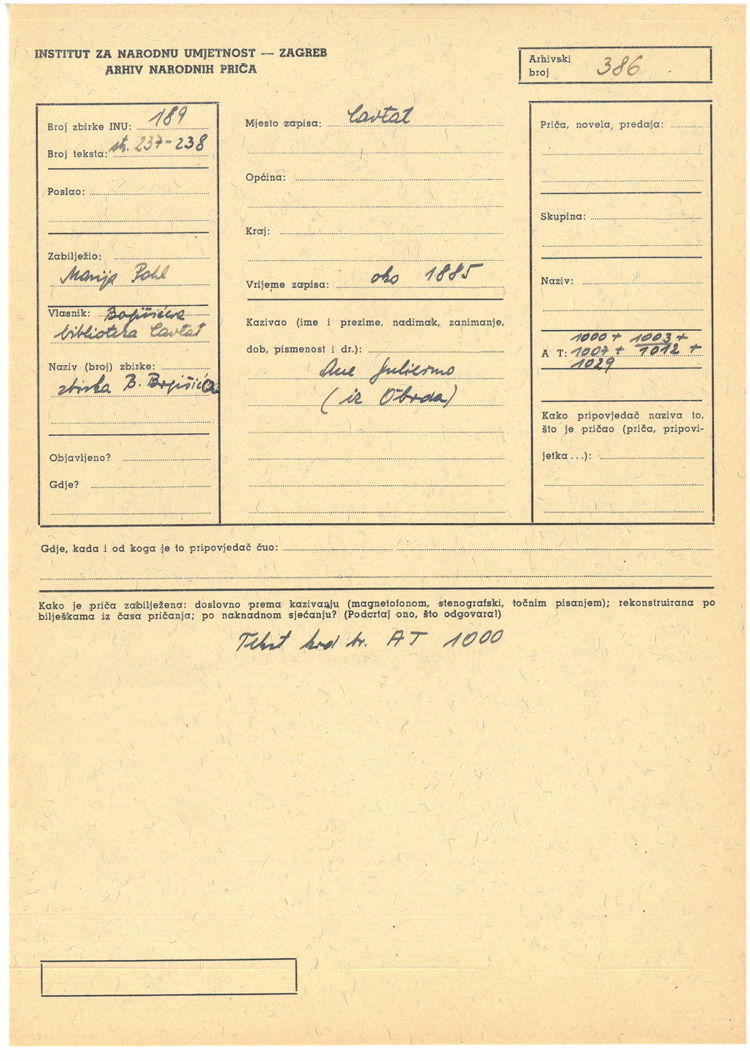 INSTITUT ZA NARODNU UMJETNOST — ZAGREB
ARHIV NARODNIH PRIČA
Arhivski
broj 386
Broj zbirke INU: 189
Broj teksta: str. 237-238
Poslao:
Zabilježio:
Marija Pohl
Vlasnik: Bogišićeva
biblioteka Cavtat
Naziv (broj) zbirke:
zbirka B. Bogišića
Objavljeno?
Gdje?
Mjesto zapisa: Cavtat
Općina:
Kraj:
Vrijeme zapisa: oko 1885
Kazivao (ime i prezime, nadimak, zanimanje,
dob, pismenost i dr.):
Ane
(iz Obroda)
Priča, novela, predaja:
Skupina:
Naziv:
1000 + 1003 +
A T: 1007 + 1012 +
1029
Kako pripovjedač naziva to,
što je pričao (priča, pripovi-
jetka ...):
Gdje, kada i od koga je to pripovjedač čuo:
Kako je priča zabilježena: doslovno prema kazivanju (magnetofonom, stenografski, točnim pisanjem); rekonstruirana po
bilješkama iz časa pričanja; po naknadnom sjećanju? (Podcrtaj ono, što odgovara!)
Tekst kod br. AT 1000